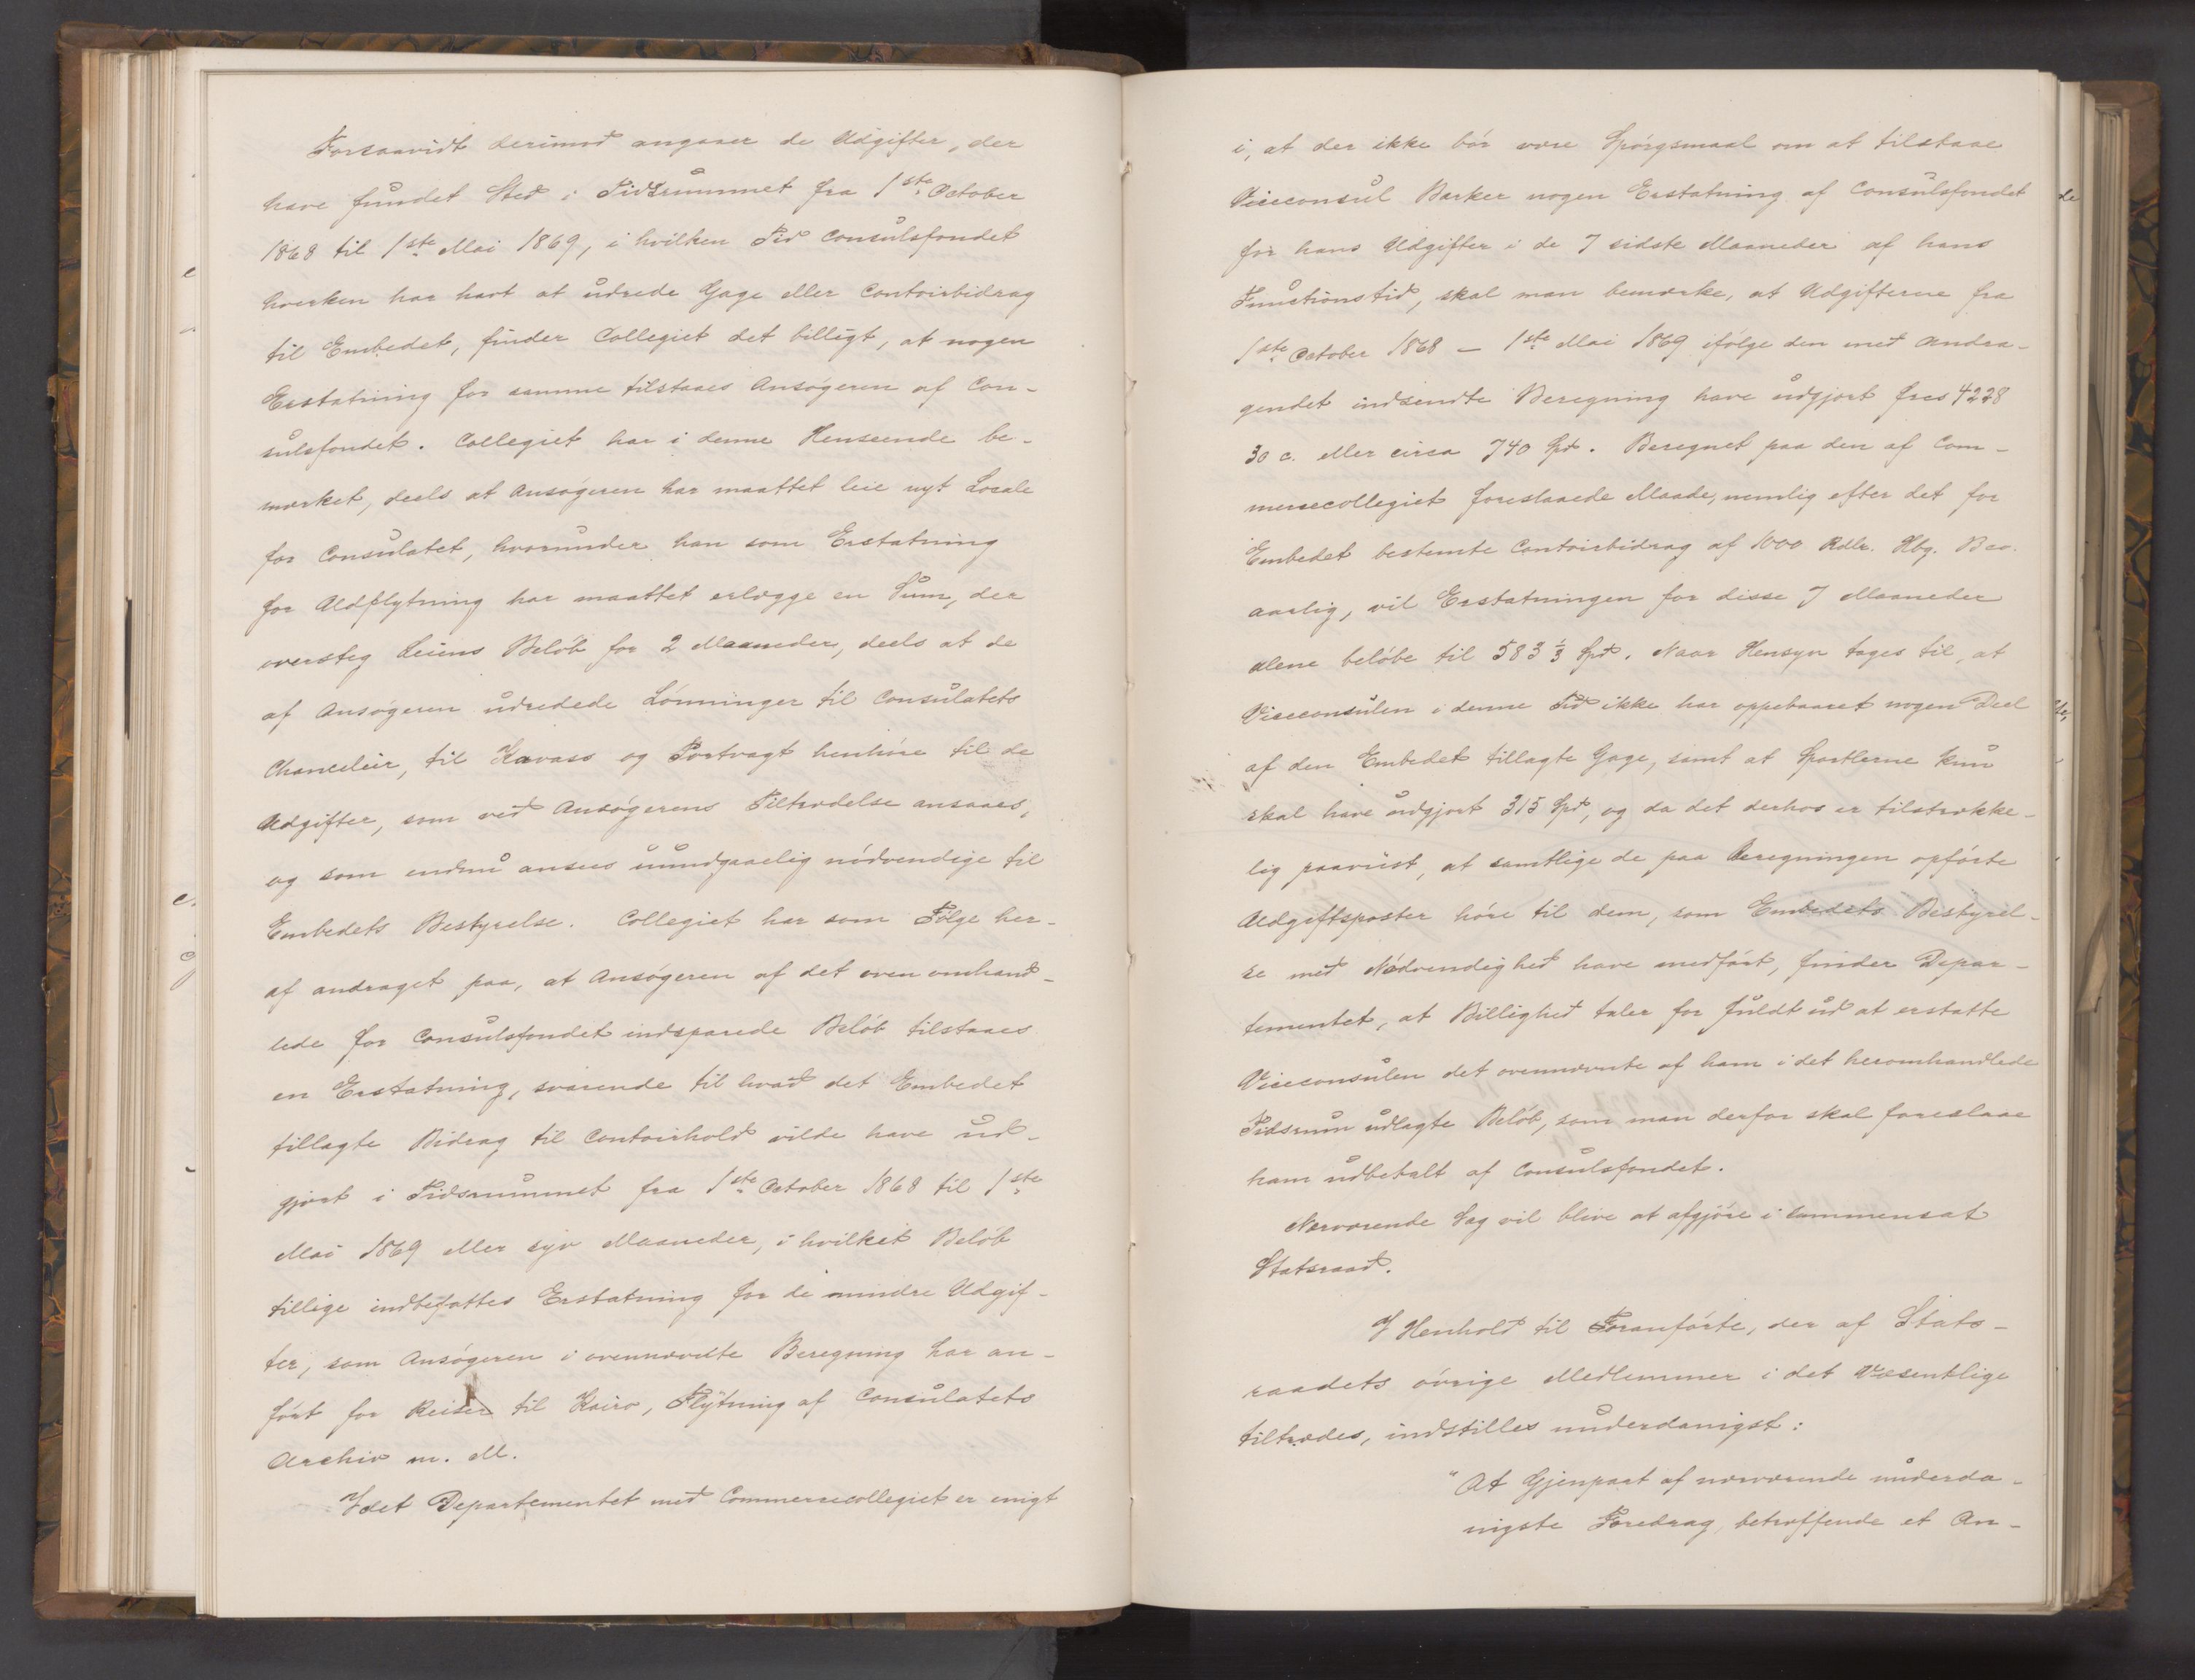 Forsaavidt derimod angaaer de Udgifter, der
have fundet Sted i Tidsrummet fra 1ste October
1868 til 1ste Mai 1869, i hvilken Tid Consulsfondet
hverken har havt at udrede Gage eller Contoirbidrag
til Embedet, finder Collegiet det billigt, at nogen
Erstatning for samme tilstaaes Ansøgeren af Con-
sulsfondet. Collegiet har i denne Henseende be-
mærket, deels at Ansøgeren har maattet leie nyt Locale
for Consulatet, hvorunder han som Erstatning
for Udflytning har maattet erlægge en Sum, der
oversteg Leiens Beløb for 2 Maaneder, deels at de
af Ansøgeren udredede Lønninger til Consulatets
Chancelier, til Kavass og Portvagt henhøre til de
Udgifter, som ved Ansøgerens Tiltrædelse ansaaes,
og som endnu ansees uundgaaelig nødvendige til
Embedets Bestyrelse. Collegiet har som Følge her-
af andraget paa, at Ansøgeren af det oven omhand-
lede for Consulsfondet indsparede Beløb tilstaaes
en Erstatning, svarende til hvad det Embedet
tillagte Bidrag til Contoirhold vilde have ud-
gjort i Tidsrummet fra 1ste October 1868 til 1ste
Mai 1869 eller syv Maaneder, i hvilket Beløb
tillige indbefattes Erstatning for de mindre Udgif-
ter, som Ansøgeren i ovennævnte Beregning har an-
ført for Reiser til Kairo, Flytning af Consulatets
Archiv m. M.
Idet Departementet med Commercecollegiet er enigt
i, at der ikke bør være Spørgsmaal om at tilstaae
Viceconsul Barker nogen Erstatning af Consulsfondet
for hans Udgifter i de 7 sidste Maaneder af hans
Functionstid, skal man bemærke, at Udgifterne fra
1ste October 1868 – 1ste Mai 1869 ifølge den med Andra-
gendet indsendte Beregning have udgjort frcs 4228
30 c. eller circa 740 Spd. Beregnet paa den af Com-
mercecollegiet foreslaaede Maade, nemlig efter det for
Embedet bestemte Contoirbidrag af 1000 Rdlr. Hbg. Bco.
aarlig, vil Erstatningen for disse 7 Maaneder
alene beløbe til 583 1/3 Spd. Naar Hensyn tages til, at
Viceconsulen i denne Tid ikke har oppebaaret nogen Deel
af den Embedet tillagte Gage, samt at Sportlerne kun
skal have udgjort 315 Spd, og da det derhos er tilstrække-
lig paaviist, at samtlige de paa Beregningen opførte
Udgiftsposter høre til dem, som Embedets Bestyrel-
se med Nødvendighed have medført, finder Depar-
tementet, at Billighed taler for fuldt ud at erstatte
Viceconsulen det ovennævnte af ham i det heromhandlede
Tidsrum udlagte Beløb, som man derfor skal foreslaae
ham udbetalt af Consulsfondet.
Nærværende Sag vil blive at afgjøre i sammensat
Statsraad.
I Henhold til Foranførte, der af Stats-
raadets øvrige Medlemmer i det Væsentlige
tiltrædes, indstilles underdanigst:
"At Gjenpart af nærværende underda-
nigste Foredrag, betræffende et An-